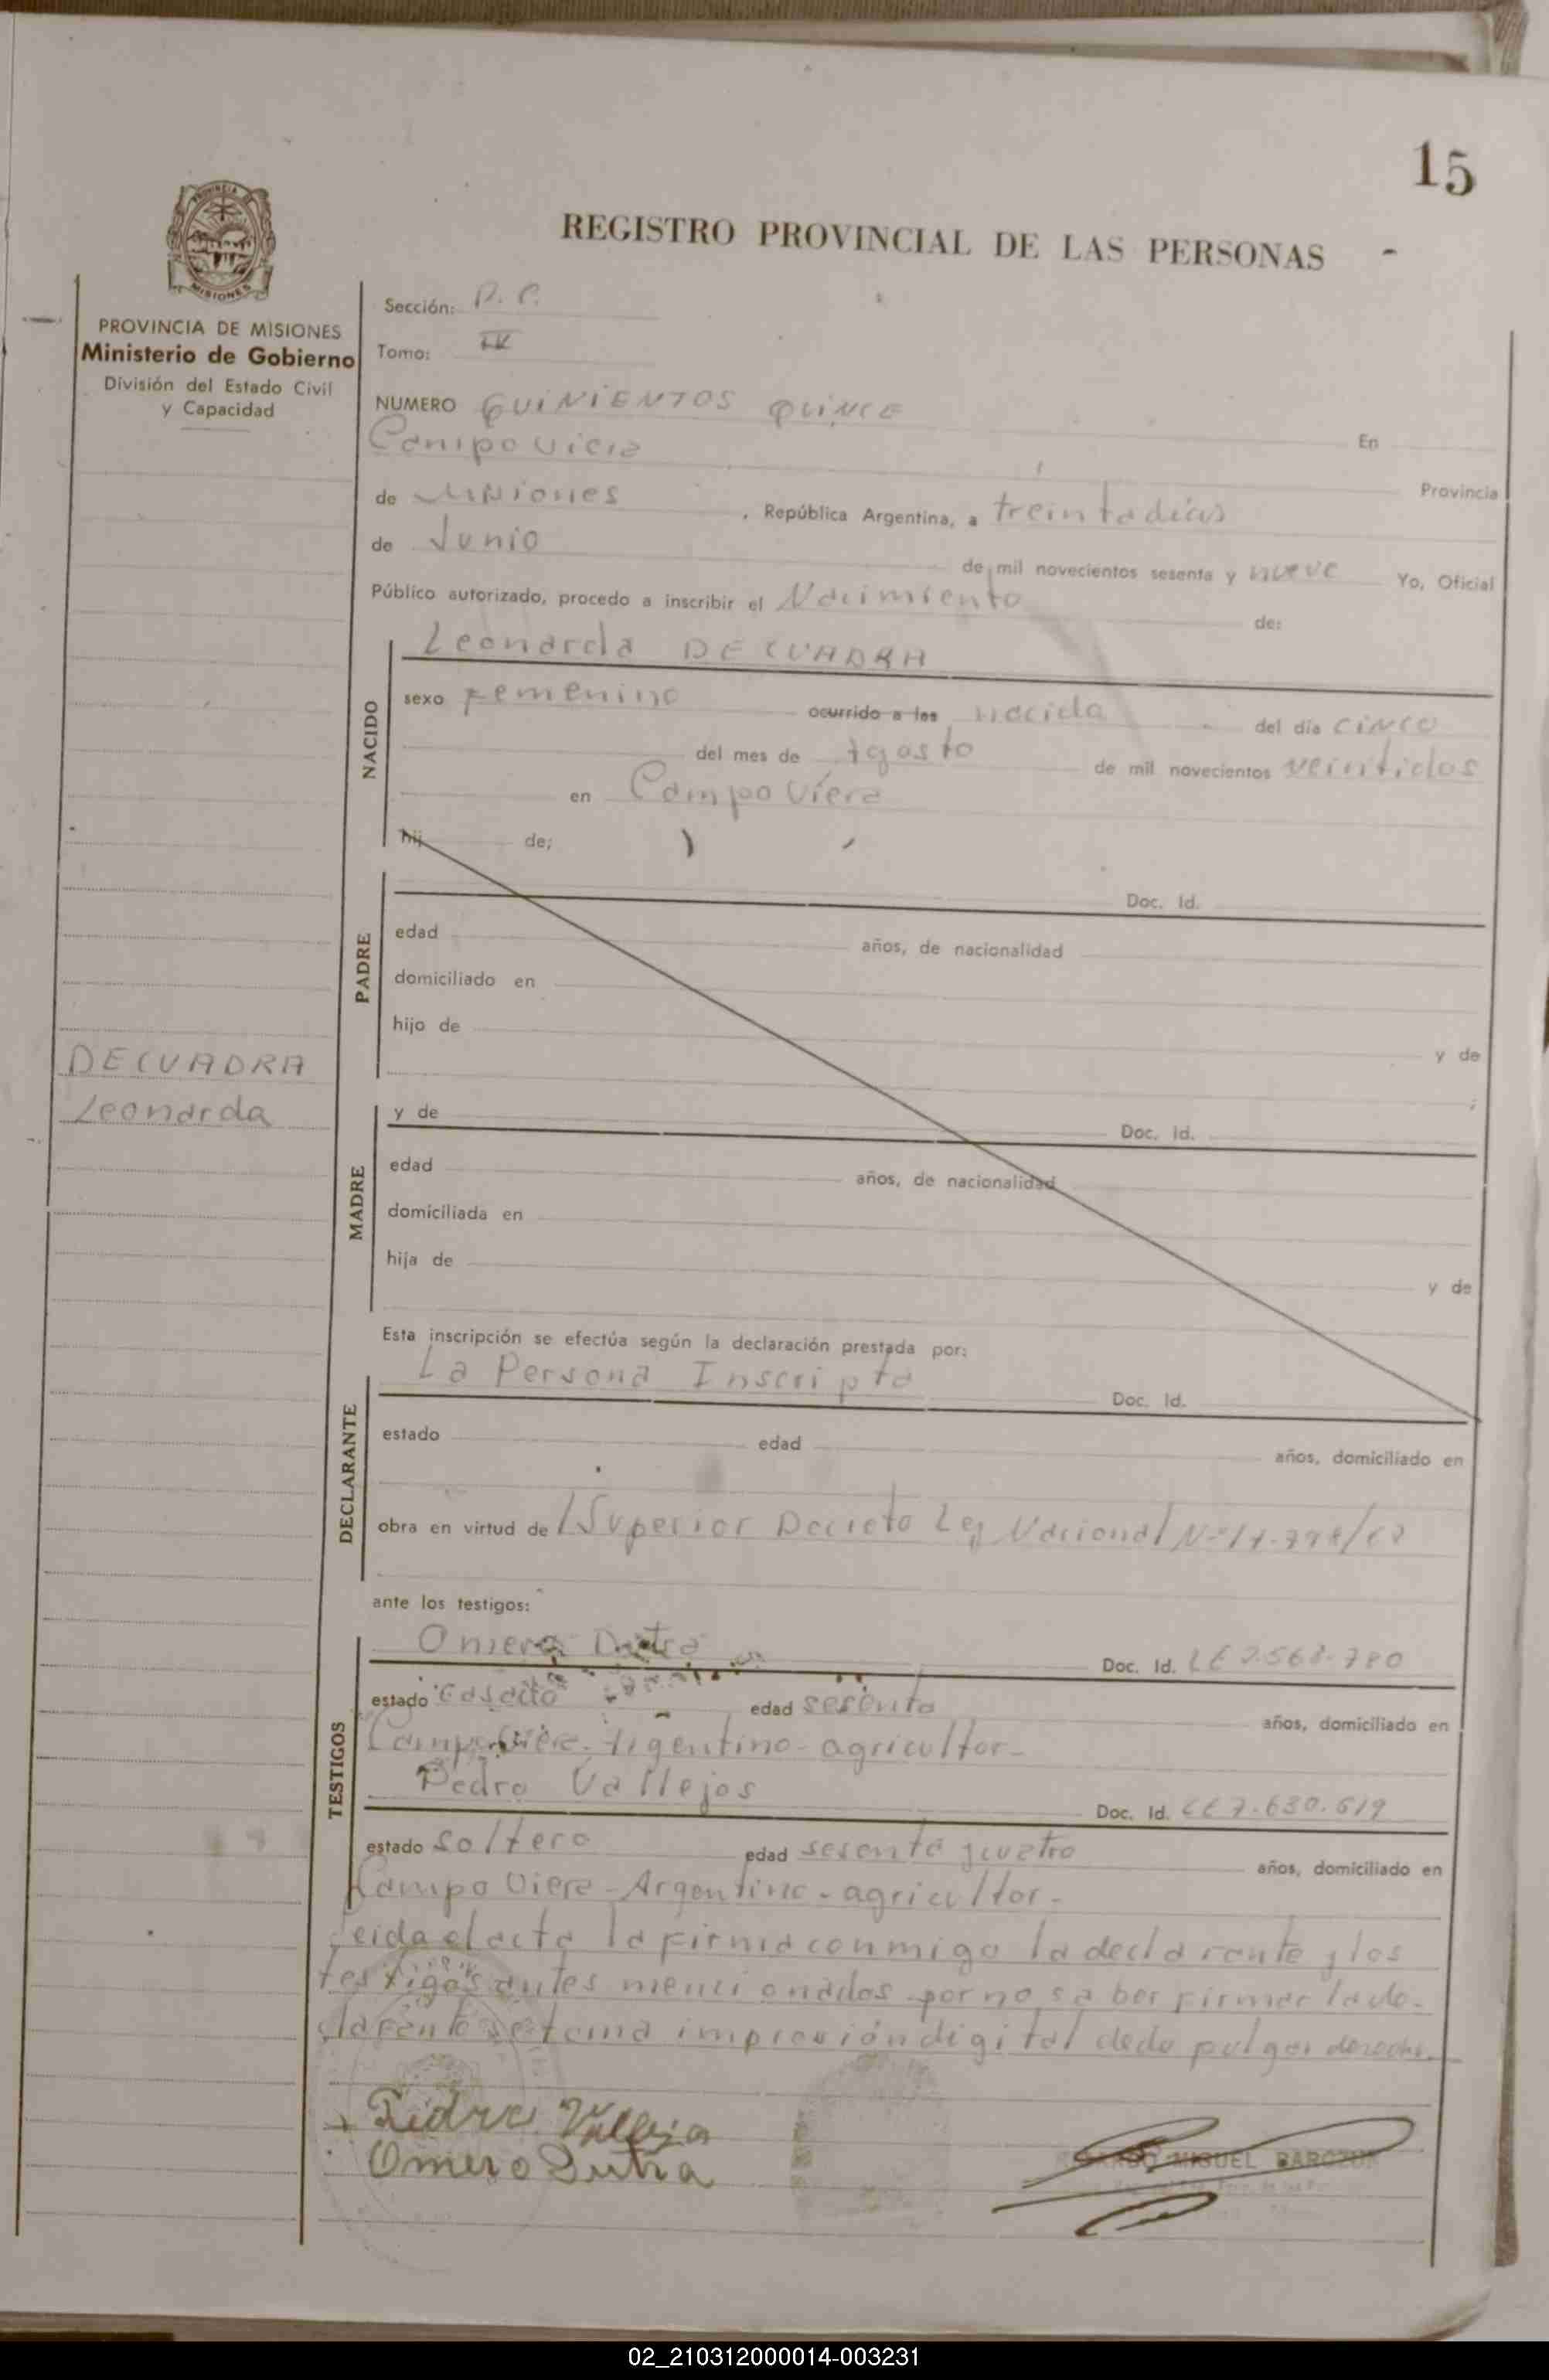 15
REGISTRO PROVINCIAL DE LAS PERSONAS -
PROVINCIA DE MISIONES
Ministerio de Gobierno
División del Estado Civil
y Capacidad
Sección: D. C.
Tomo: IV
NUMERO QUINIENTOS QUINCE En
Campo Viera Provincia
de Misiones, República Argentina, a treinta dias
de Junio de mil novecientos sesenta y nueve Yo, Oficial
Público autorizado, procedo a inscribir el Nacimiento de:
NACIDO
Leonarda DECUADRA
sexo Femenino ocurrido a las nacida del día CINCO
del mes de Agosto de mil novecientos veintidos
en Campo Viera
hij de;
PADRE
Doc. Id.
edad años, de nacionalidad
domiciliado en
hijo de y de
;
DECUADRA
Leonarda
MADRE
y de Doc. Id.
edad años, de nacionalidad
domiciliada en
hija de y de
Esta inscripción se efectúa según la declaración prestada por:
DECLARANTE
La Persona Inscripta Doc. Id.
estado edad años, domiciliado en
obra en virtud de Superior Decreto Ley Nacional Nº
ante los testigos:
TESTIGOS
Omero Dutra Doc. Id. LE 7.568.780
estado casado edad sesenta años, domiciliado en
Campo Viera - Argentino - agricultor -
Pedro Vallejos Doc. Id. LE 7.630.619
estado soltero edad sesenta y cuatro años, domiciliado en
Campo Viera - Argentino - agricultor -
Leida el acta la firma conmigo la declarante y los
testigos antes mencionados por no saber firmar la de-
clarante se toma impresión digital dedo pulgar derecho.
Pedro Valleja
Omero Dutra
MIGUEL
02_210312000014-003231